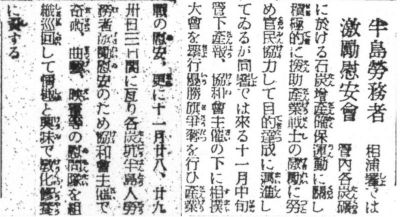 半島勞務者
激勵慰安會
相浦署では
管內各炭礦
に於ける石炭增產確保運動に關し
積極的に援助產業戰士の激勵に努
め官民協力して目的達成に邁進し
てゐるが同署では來る十一月中旬
管下產報、協和會主催の下に相撲
大會を擧行優勝旗爭奪を行ひ產業
の慰安。更に十一月廿八、廿九
卅日三日間に亙り各炭坑半島人勞
務者激勵慰安のため協和會主催で
奇術、曲藝、映畫等の慰問隊を組
織巡回して情操と興味で敎化修養
に資する